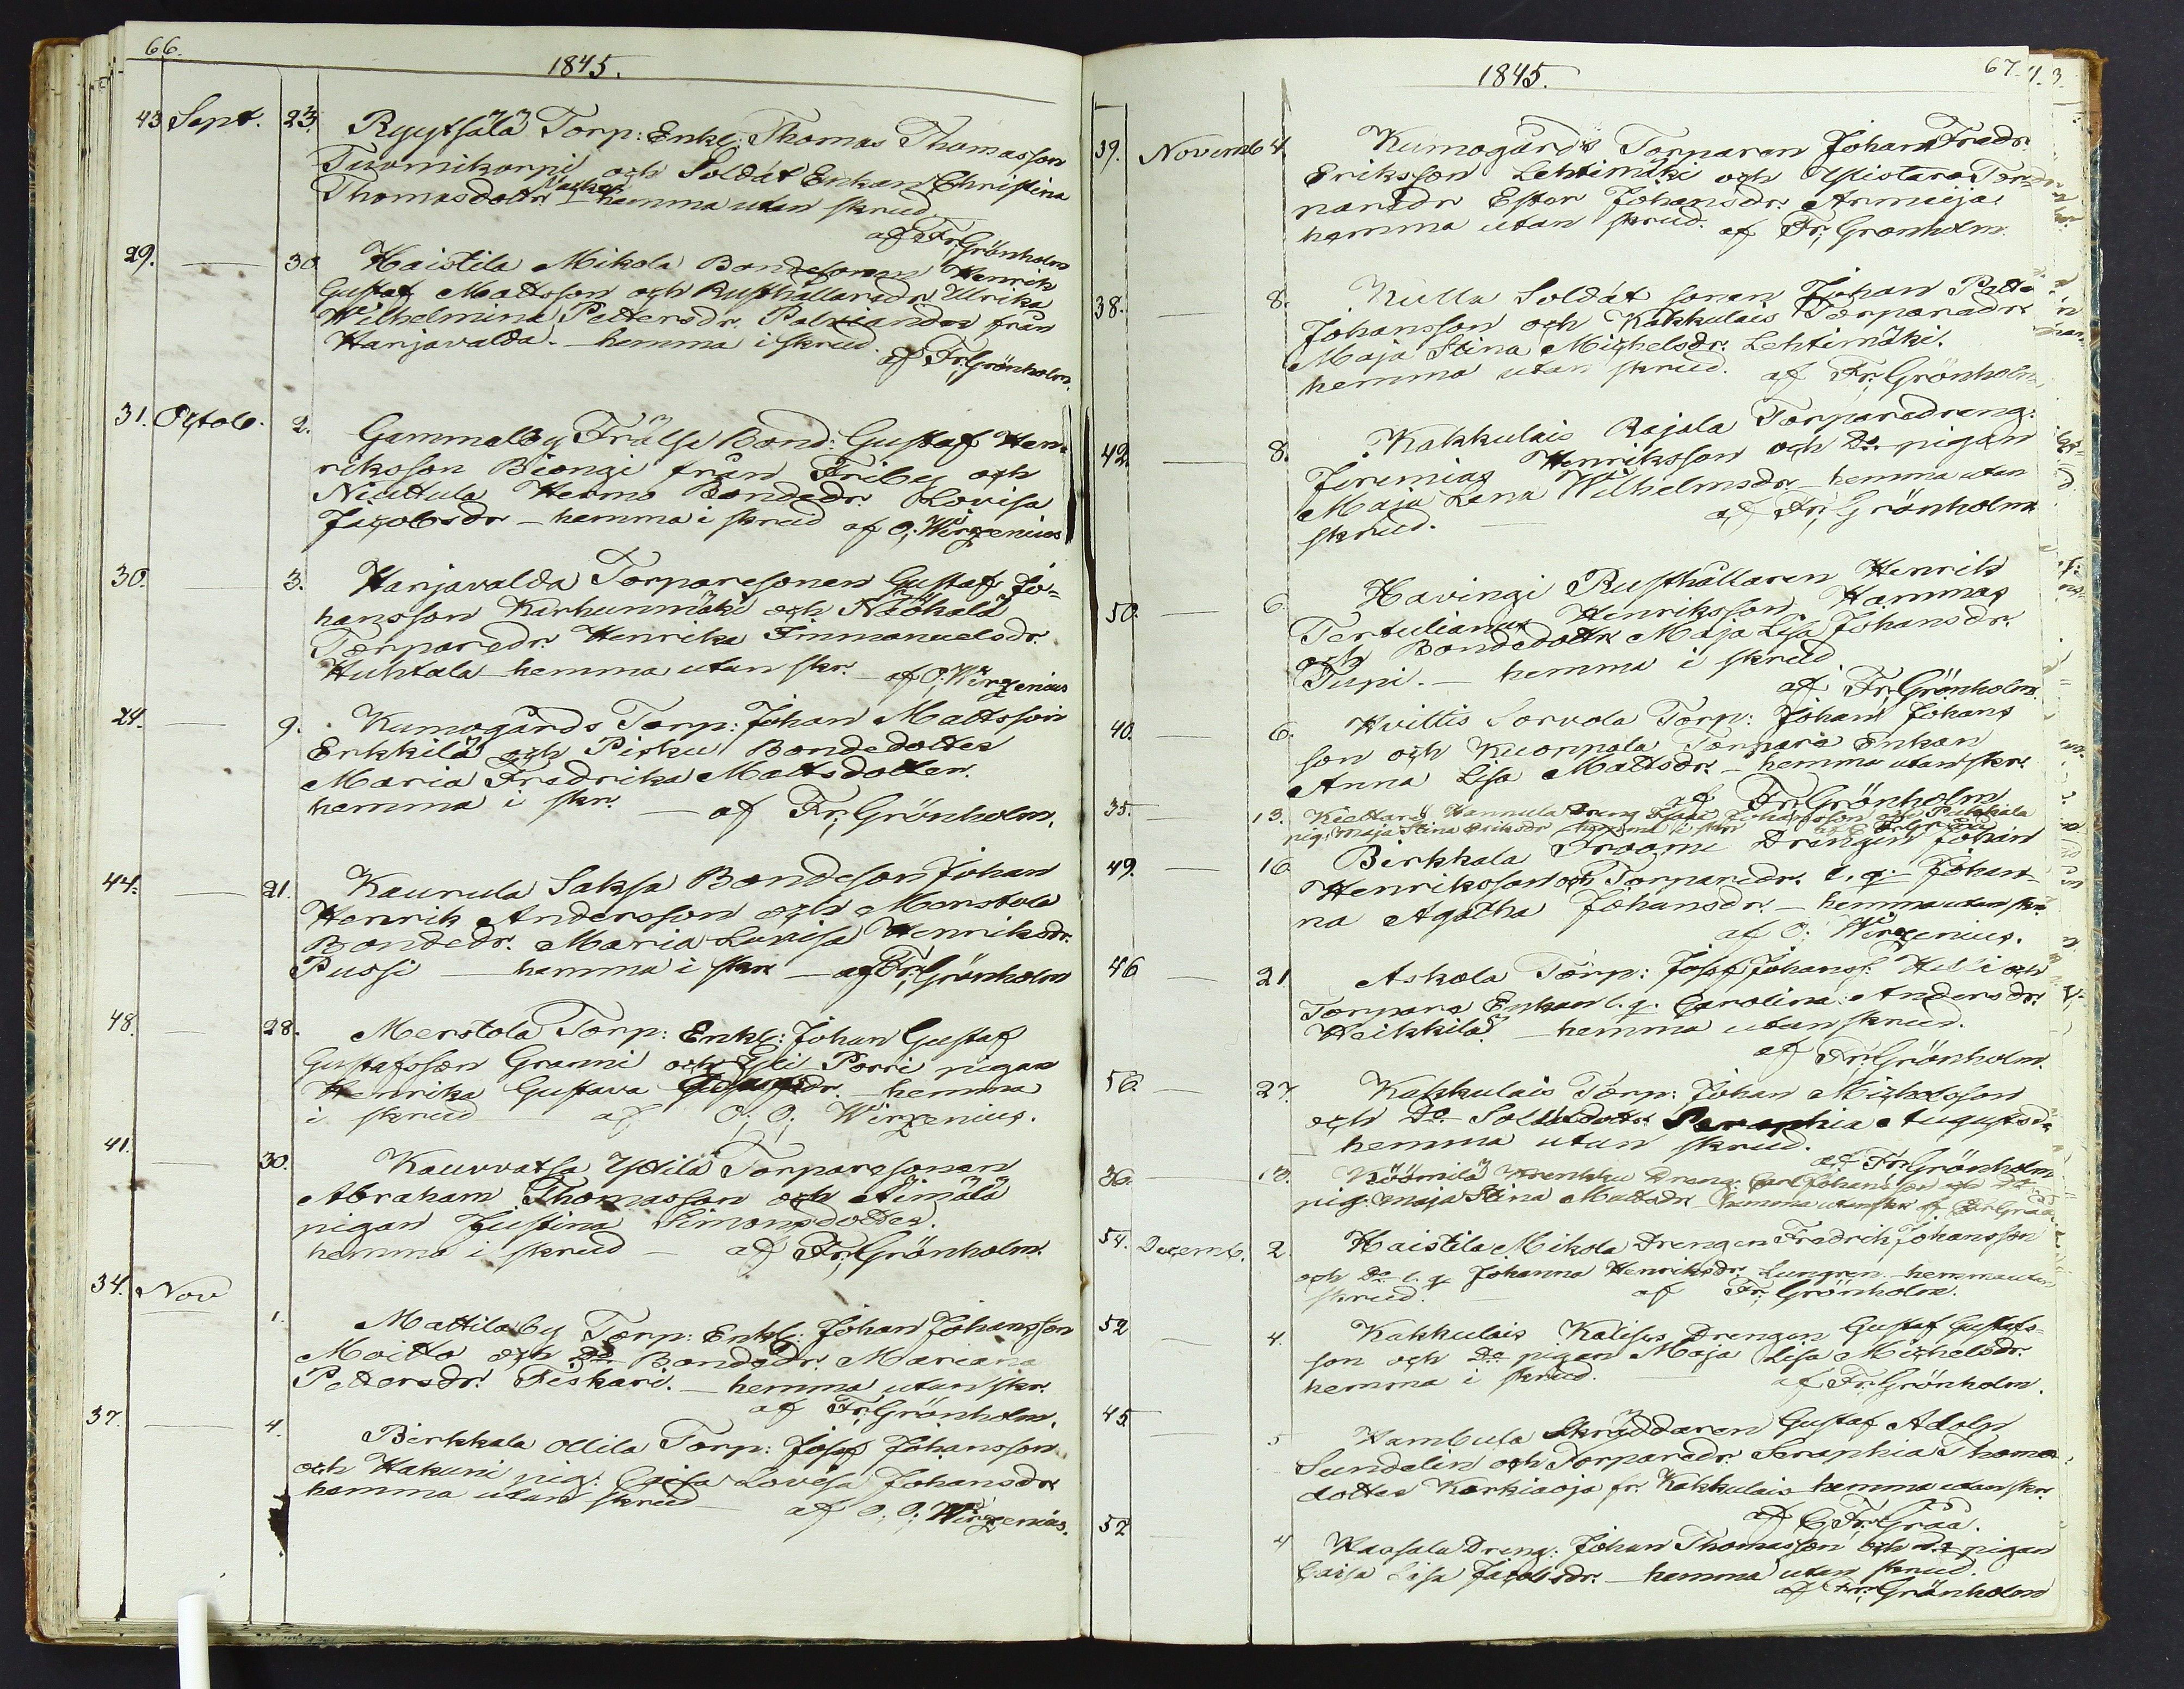 66.
1845.
43 Sept. 23. Ryytsälä Torp: Enkl: Thomas Thomasson
Tuomikorpi och Soldat Enkan Christina
Thomasdotr Vacker hemma utan skrud
af Fr; Grönholm
29. 30 Haistila Mikola Bondesonen Henrik
Gustaf Mattsson och Rusthållaredr. Ulrika
Wilhelmina Pettersdr. Palviander från
Harjavalda. hemma i skrud.
af Fr; Grönholm.
31. Octob. 2. Gammelby Frälse Bond: Gustaf Hen-
riksson Biengi från Friby och
Niuttula Hermo Bondedr. Lovisa
Jacobsdr – hemma i skrud af O; Wirzenius
30. 3. Harjavalda Torparesonen Gustaf Jo-
hansson Karhunmäki och Näöhälä
Torparedr. Henrika Immanuelsdr.
Huhtala hemma utan skr. – af O; Wirzenius
24. 9. Kumogårds Torp: Johan Mattsson
Erkkilä och Pisku Bondedotter
Maria Fredrika Mattsdotter.
hemma i skr. – af Fr; Grönholm.
44. 21. Kaurula Saksa Bondeson Johan
Henrik Andersson och Merstola
Bondedr. Maria Lovisa Henriksdr.
Pussi – hemma i skr – af Fr; Grönholm
48. 28. Merstola Torp: Enkl: Johan Gustaf
Gustafsson Granni och Yli Porri pigan
Henrika Gustava dr. hemma
i skrud af O; O; Wirzenius.
41. 30. Kauvatsa Yttilä Torparesonen
Abraham Thomasson och Äimälä
pigan Justina Simonsdotter.
hemma i skrud – af Fr; Grönholm.
34. Nov 1. Mattilaby Torp: Enkl: Johan Johansson
Moitto och Do Bondedr. Mariana
Pettersdr. Fiskari. – hemma utan skr.
af Fr; Grönholm.
37. 4. Birkkala Ollila Torp: Josef Johansson
och Hakuni pig: Caisa Lovisa Johansdr
hemma utan skrud
af O; O; Wirzenius.
67.
1845.
39. Novemb 4. Kumogårds Torparen Johan Fredr.
Eriksson Lehtimäki och Ylistaro Tor-
paredr Ester Johansdr. Armeija.
hemma utan skrud. af Fr; Grönholm.
38. 8. Kulla Soldat sonen Johan Petter
Johansson och Kakkulais Torparedr.
Maja Stina Michelsdr. Lehtimäki.
hemma utan skrud. af Fr; Grönholm.
42. 8. Kakkulais Rajala Torparedreng:
Jeremias Henriksson och Do pigan
Maja Lena Wilhelmsdr – hemma utan
skrud. – af Fr; Grönholm
50. 6. Havingi Rusthållaren Henrik
Tertulianus Henriksson Hammas
och Bondedottr Maja Lisa Johansdr.
Tupi. – hemma i skrud
af Fr; Grönholm.
40. 6. Hvittis Sorvola Torp: Johan Johans
son och Kuoppala Torpare Enkan
Anna Lisa Mattsdr. – hemma utan skr.
af Fr; Grönholm
35. 13. Kiettare Hannula dreng Johansson och Pirkkala
pig: Maja Stina Eriksdr hemma i skr
49. 16 Birkkala Froomi Drengen Johan
Henriksson och Torparedr. l. q. Johan-
na Agatha Johansdr. – hemma utan skr.
af O; Wirzenius.
46 21 Askola Torp: Josef Johanss: Helli och
Torpare Enkan l. q. Carolina Andersdr.
Heikkilä. – hemma utan skrud.
af Fr; Grönholm.
56. 27. Kakkulais Torp: Johan Michelsson
och Do Soldatdotr. Seraphia Augustsdr
hemma utan skrud.
af Fr; Grönholm
36. 13. Köömilä Dreng: Carl Johansson och Do
pig. Maja Stina Mattsdr hemma utan skr af
54. Decemb. 2. Haistila Mikola Drengen Fredrik Johansson
och Do l. q. Johanna Henriksdr. Lungren. hemma utan
skrud. – af Fr; Grönholm.
52 4. Kakkulais Kalisus Drengen Gustaf Gustafs-
son och Do pigan Maja Lisa Michelsdr.
hemma i skrud. – af Fr; Grönholm.
45 5 Hambula Skräddaren Gustaf Adolp
Sundelin och Torparedr. Seraphia Thomas
dotter Karkiaoja fr. Kakkulais hemma utan skr.
af C Fr: Gråå.
57 4 Haasala Dreng: Johan Thomasson och d.o pigan
Caisa Lisa Jacobsdr. – hemma utan skrud.
af Fr; Grönholm